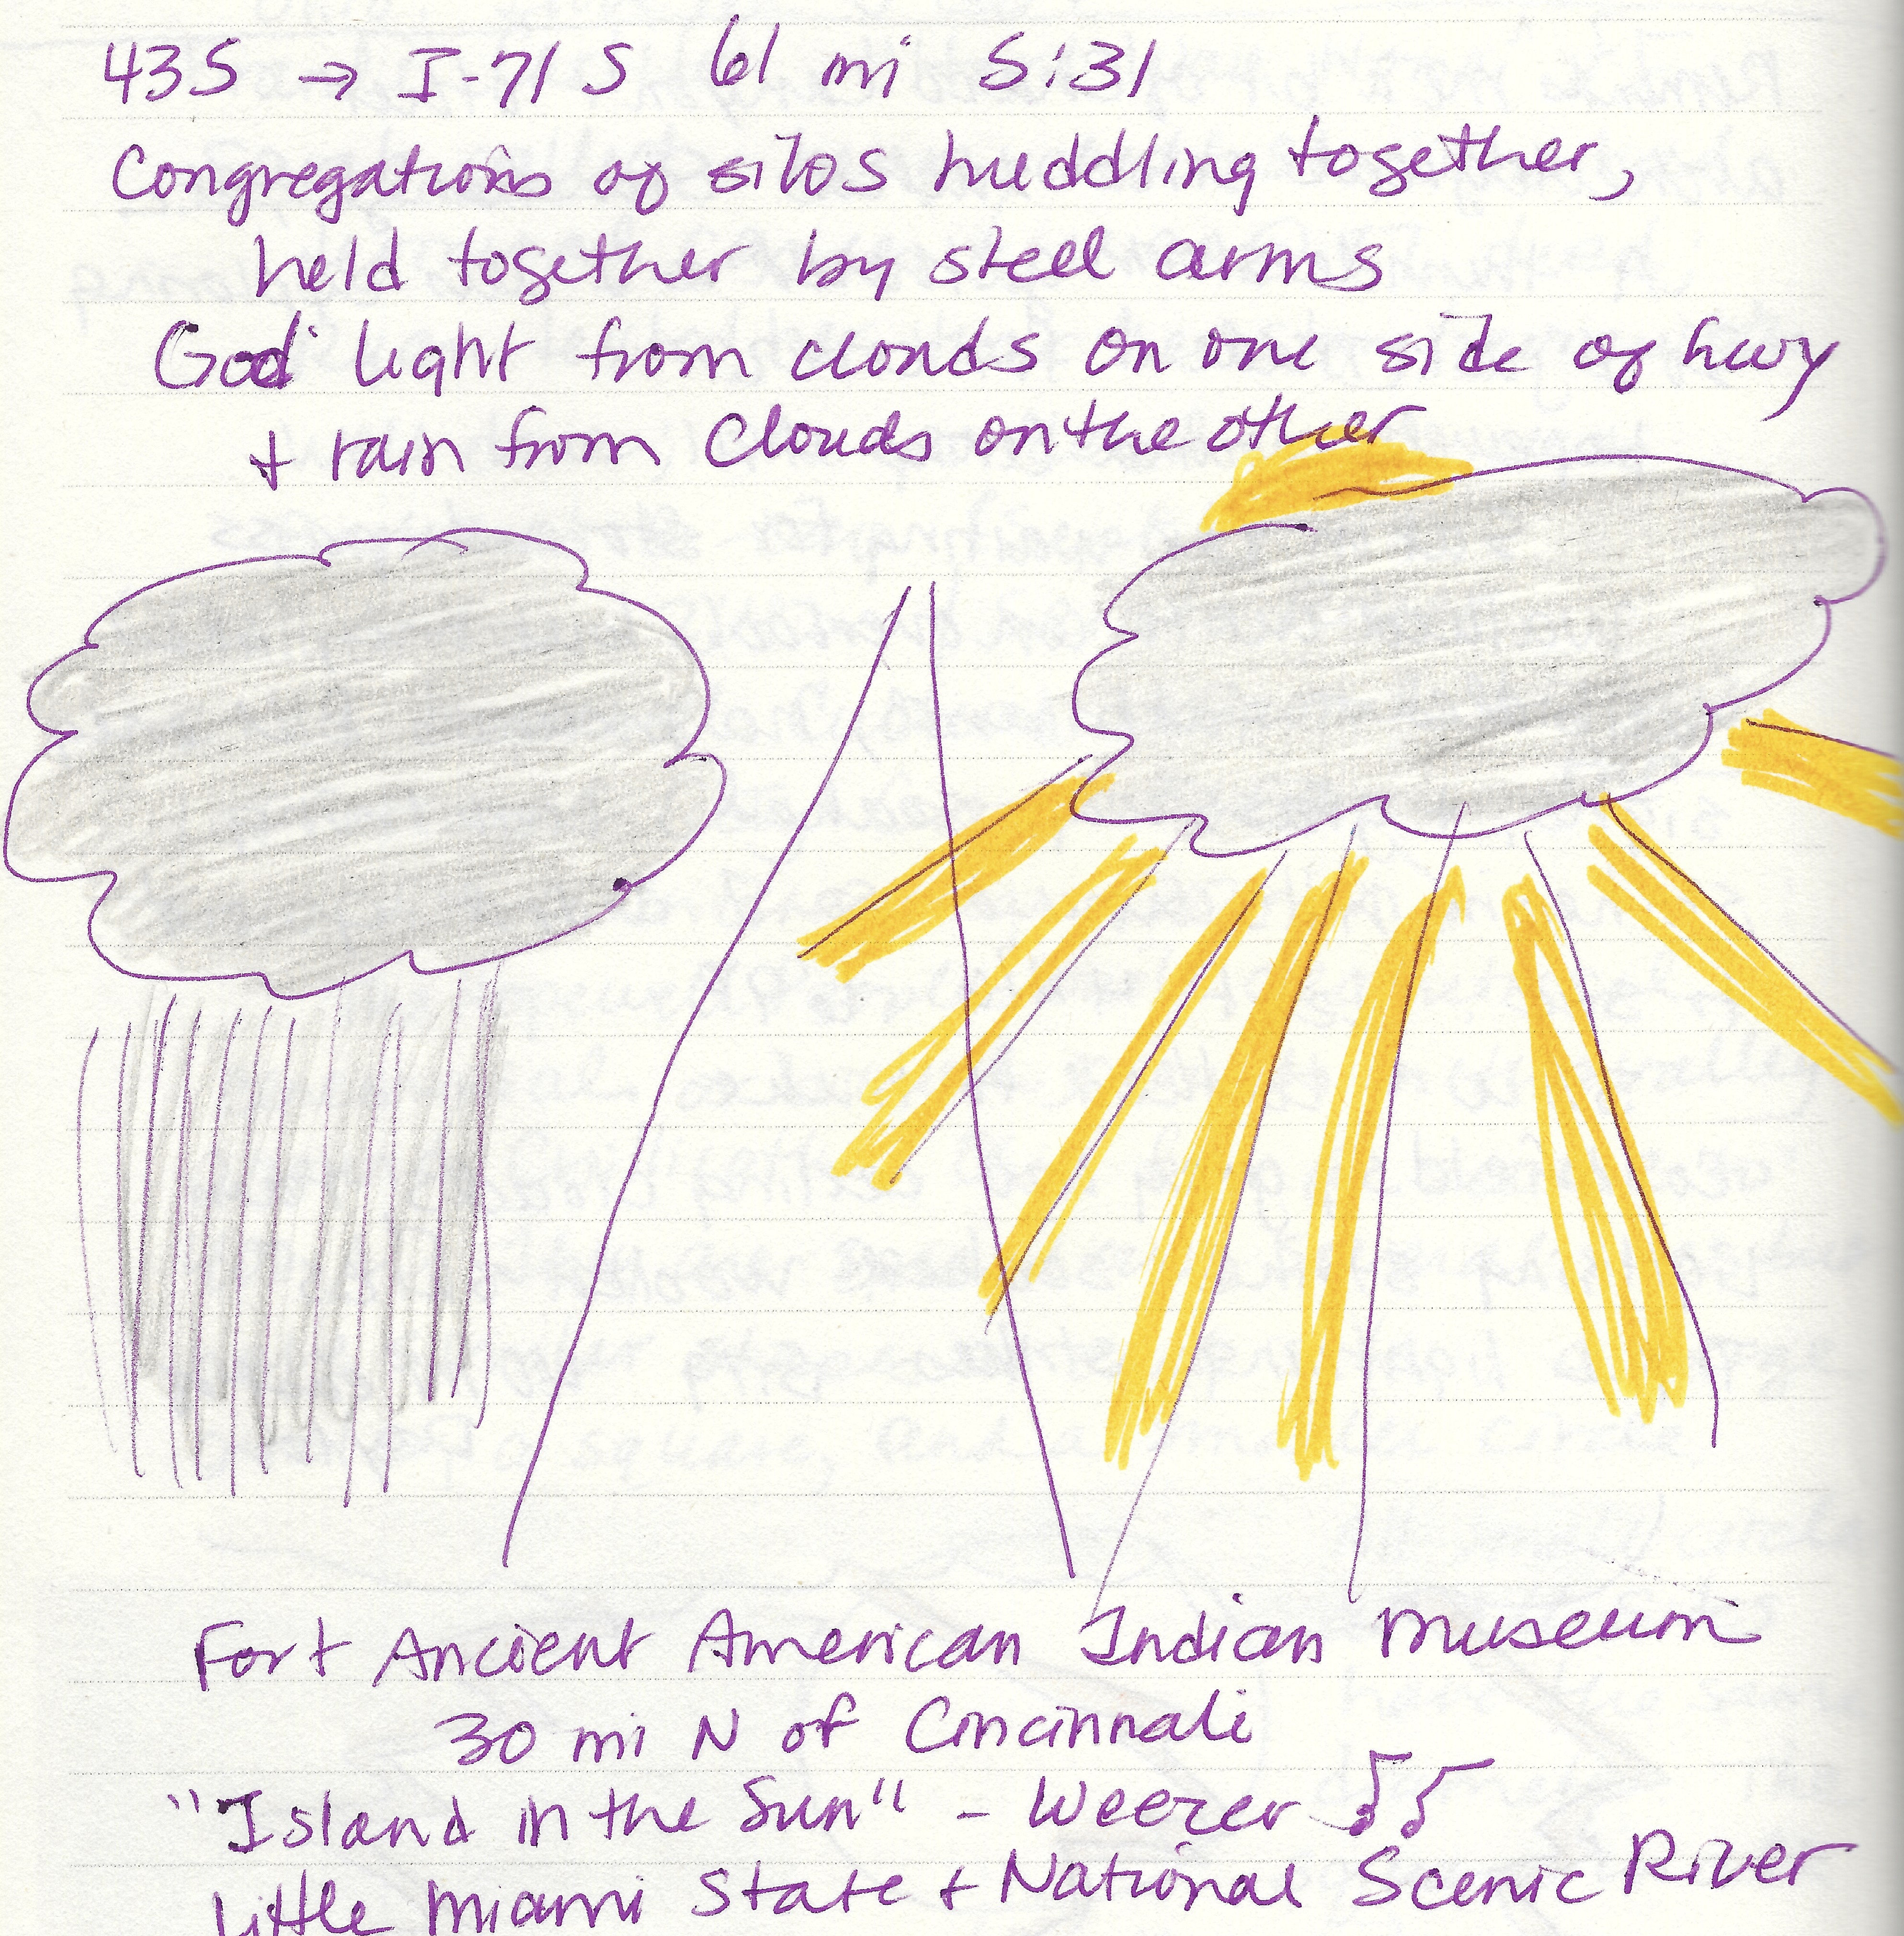 43S → I-71 S 61 mi 5:31
Congregations of silos huddling together,
held together by steel arms
God light from clouds on one side of hwy
+ rain from clouds on the other
Fort Ancient American Indian Museum
30 mi N of Cincinnati
"Island in the Sun" - Weezer
Little Miami State + National Scenic River